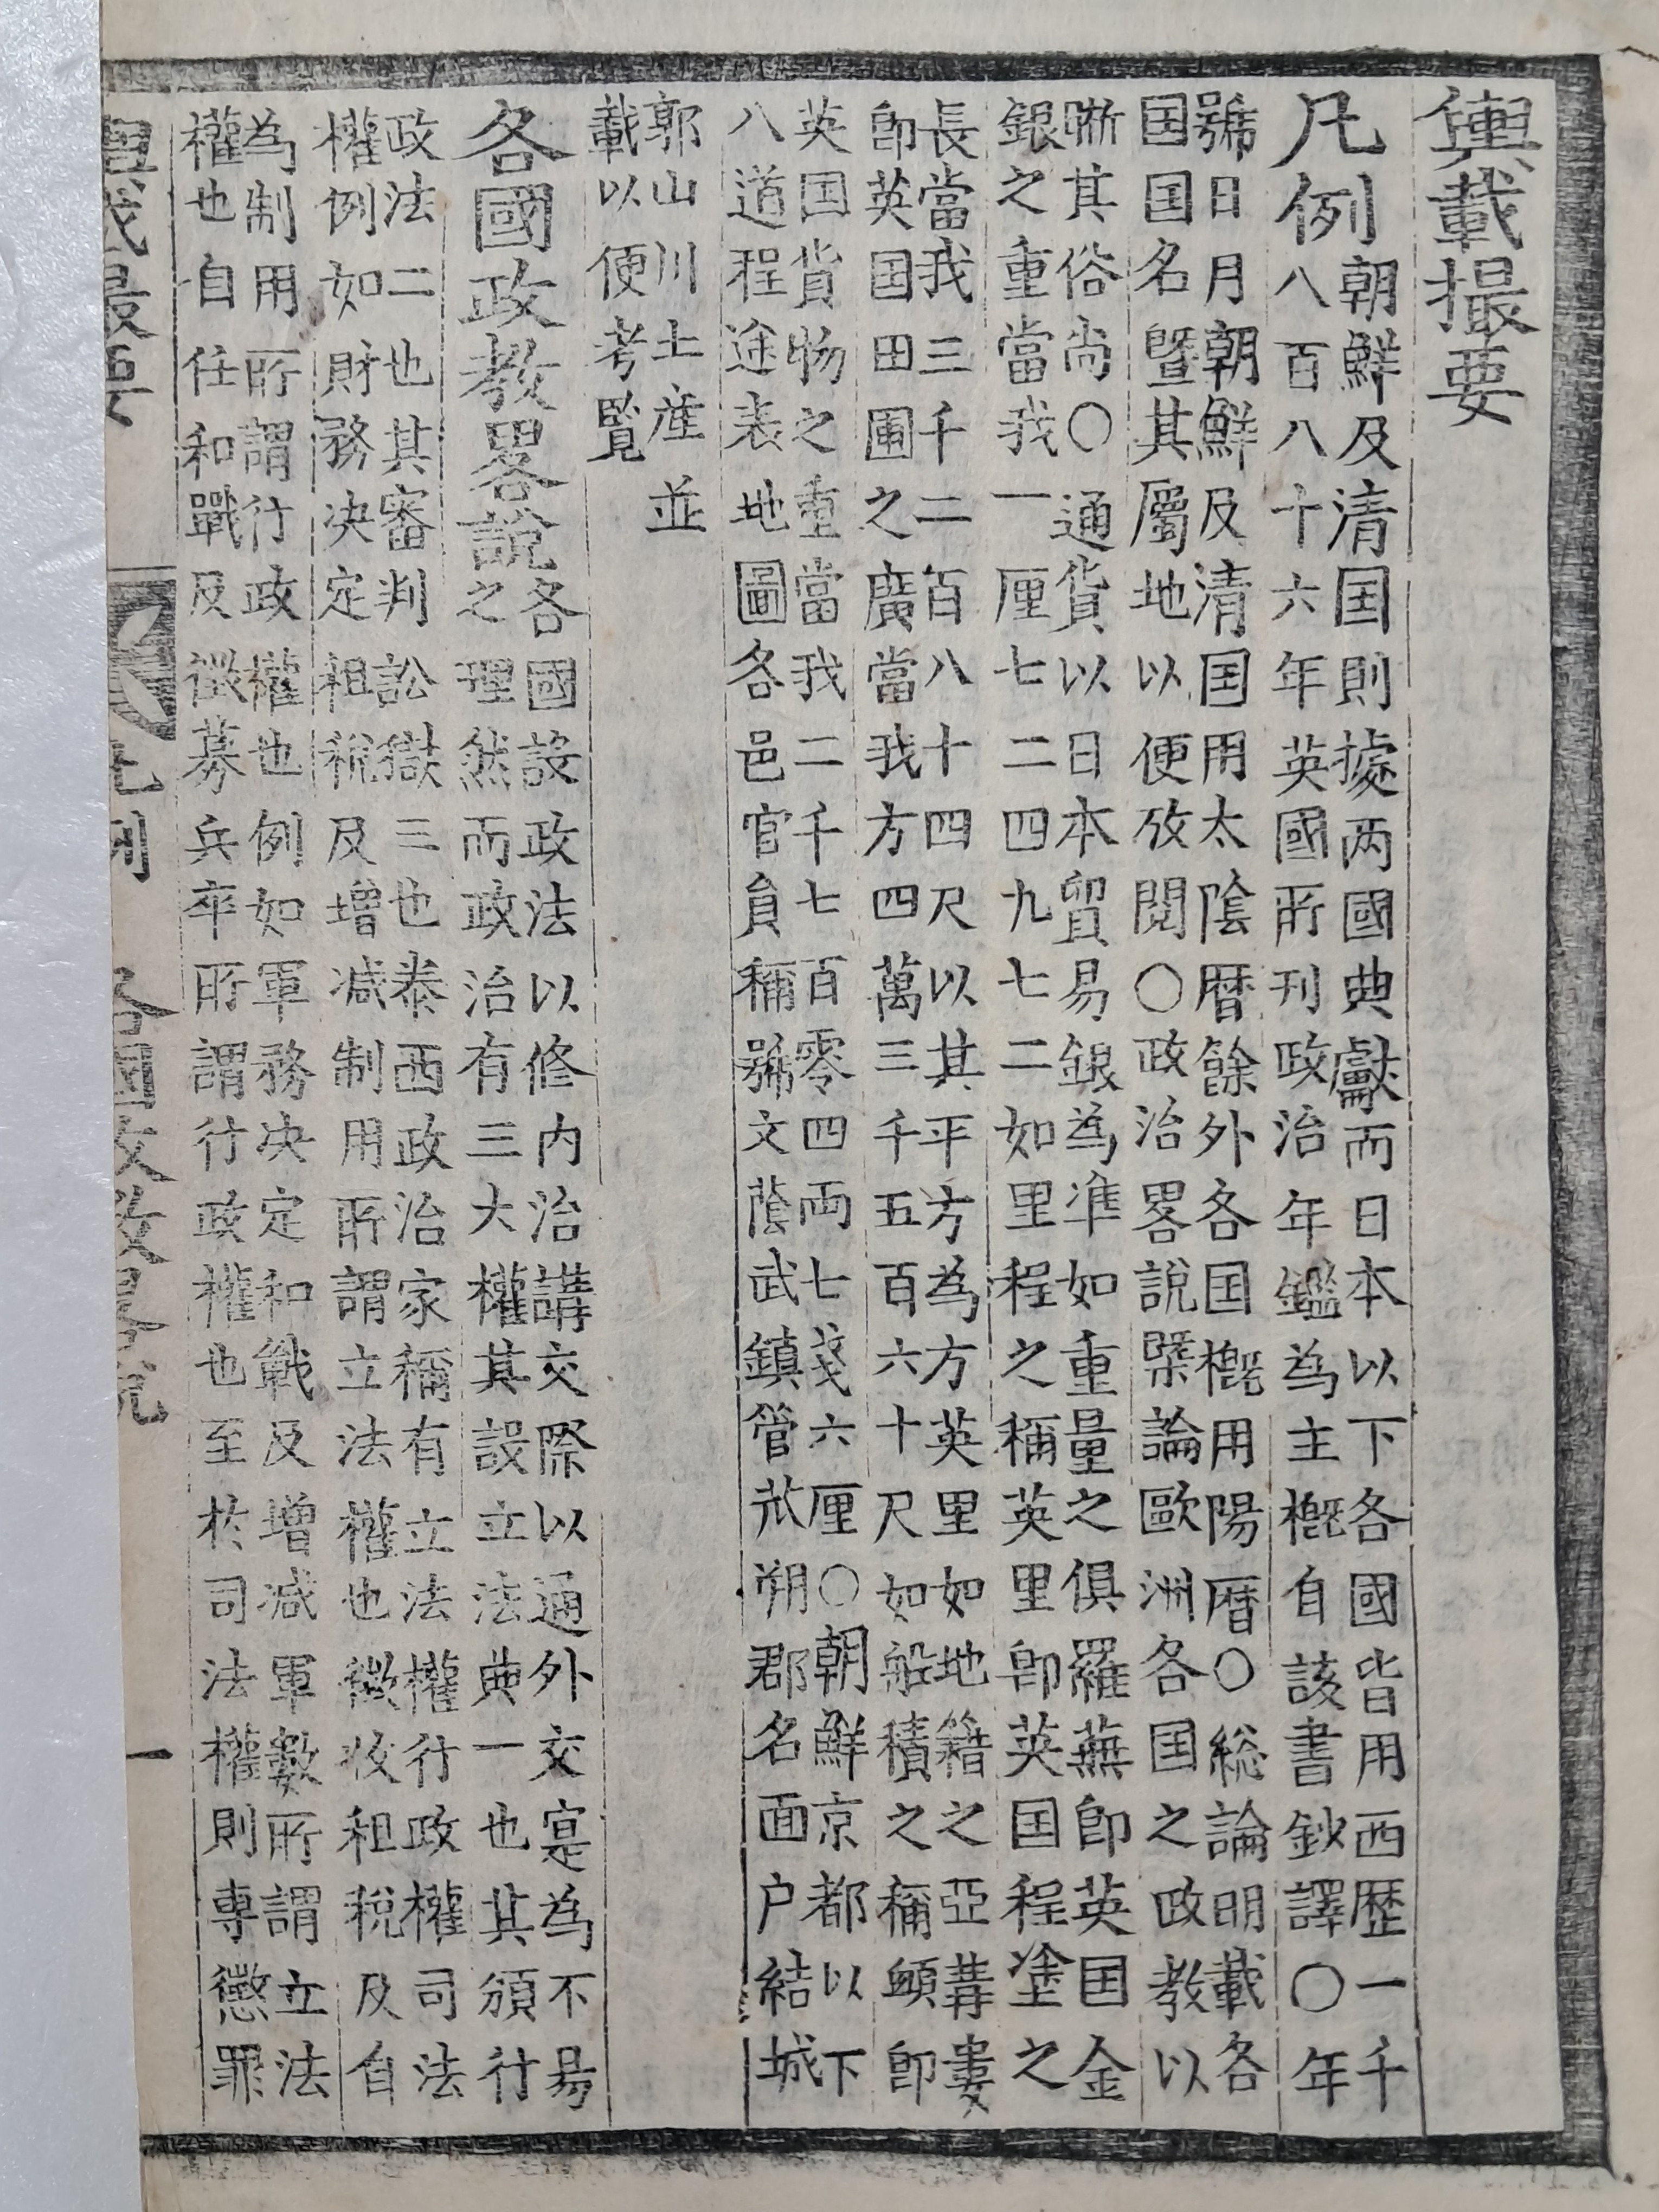 輿載撮要
凡例
朝鮮及清国則據两國典獻而日本以下各國皆用西歷一千
八百八十六年英國所刊政治年鑑為主概自該書鈔譯〇年
號日月朝鮮及清国用太陰暦餘外各国概用陽暦〇総論明載各
国国名曁其屬地以便攷閱〇政治畧說槩論歐洲各国之政教以
晣其俗尚〇通貨以日本貿易銀為準如重量之俱羅蕪即英国金
銀之重當我一厘七二四九七二如里程之稱英里即英国程塗之
長當我三千二百八十四尺以其平方為方英里如地籍之亞冓婁
即英国田圃之廣當我方四萬三千五百六十尺如船積之稱頓即
英国貨物之重當我二千七百零四両七戔六厘〇朝鮮京都以下
八道程途表地圖各邑官員稱號文蔭武鎮管並朔郡名面户結城
郭山川土産並
載以便考覧
各國政教畧說
各國設政法以修内治講交際以通外交寔為不易
之理然而政治有三大權其設立法典一也其頒行
政法二也其審判訟獄三也泰西政治家稱有立法權行政權司法
權例如財務决定租稅及增减制用所謂立法權也徵收租税及自
為制用所謂行政權也例如軍務决定和戰及增减軍數所謂立法
權也自任和戰及徵募兵卒所謂行政權也至於司法權則專懲罪
輿載撮要
凡例
各国政教畧說
一